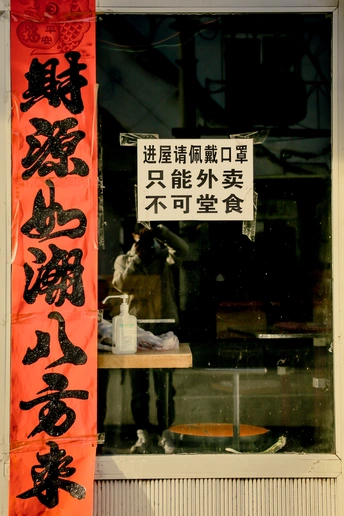 财源如潮八方来
进屋请佩戴口罩
只能外卖
不可堂食